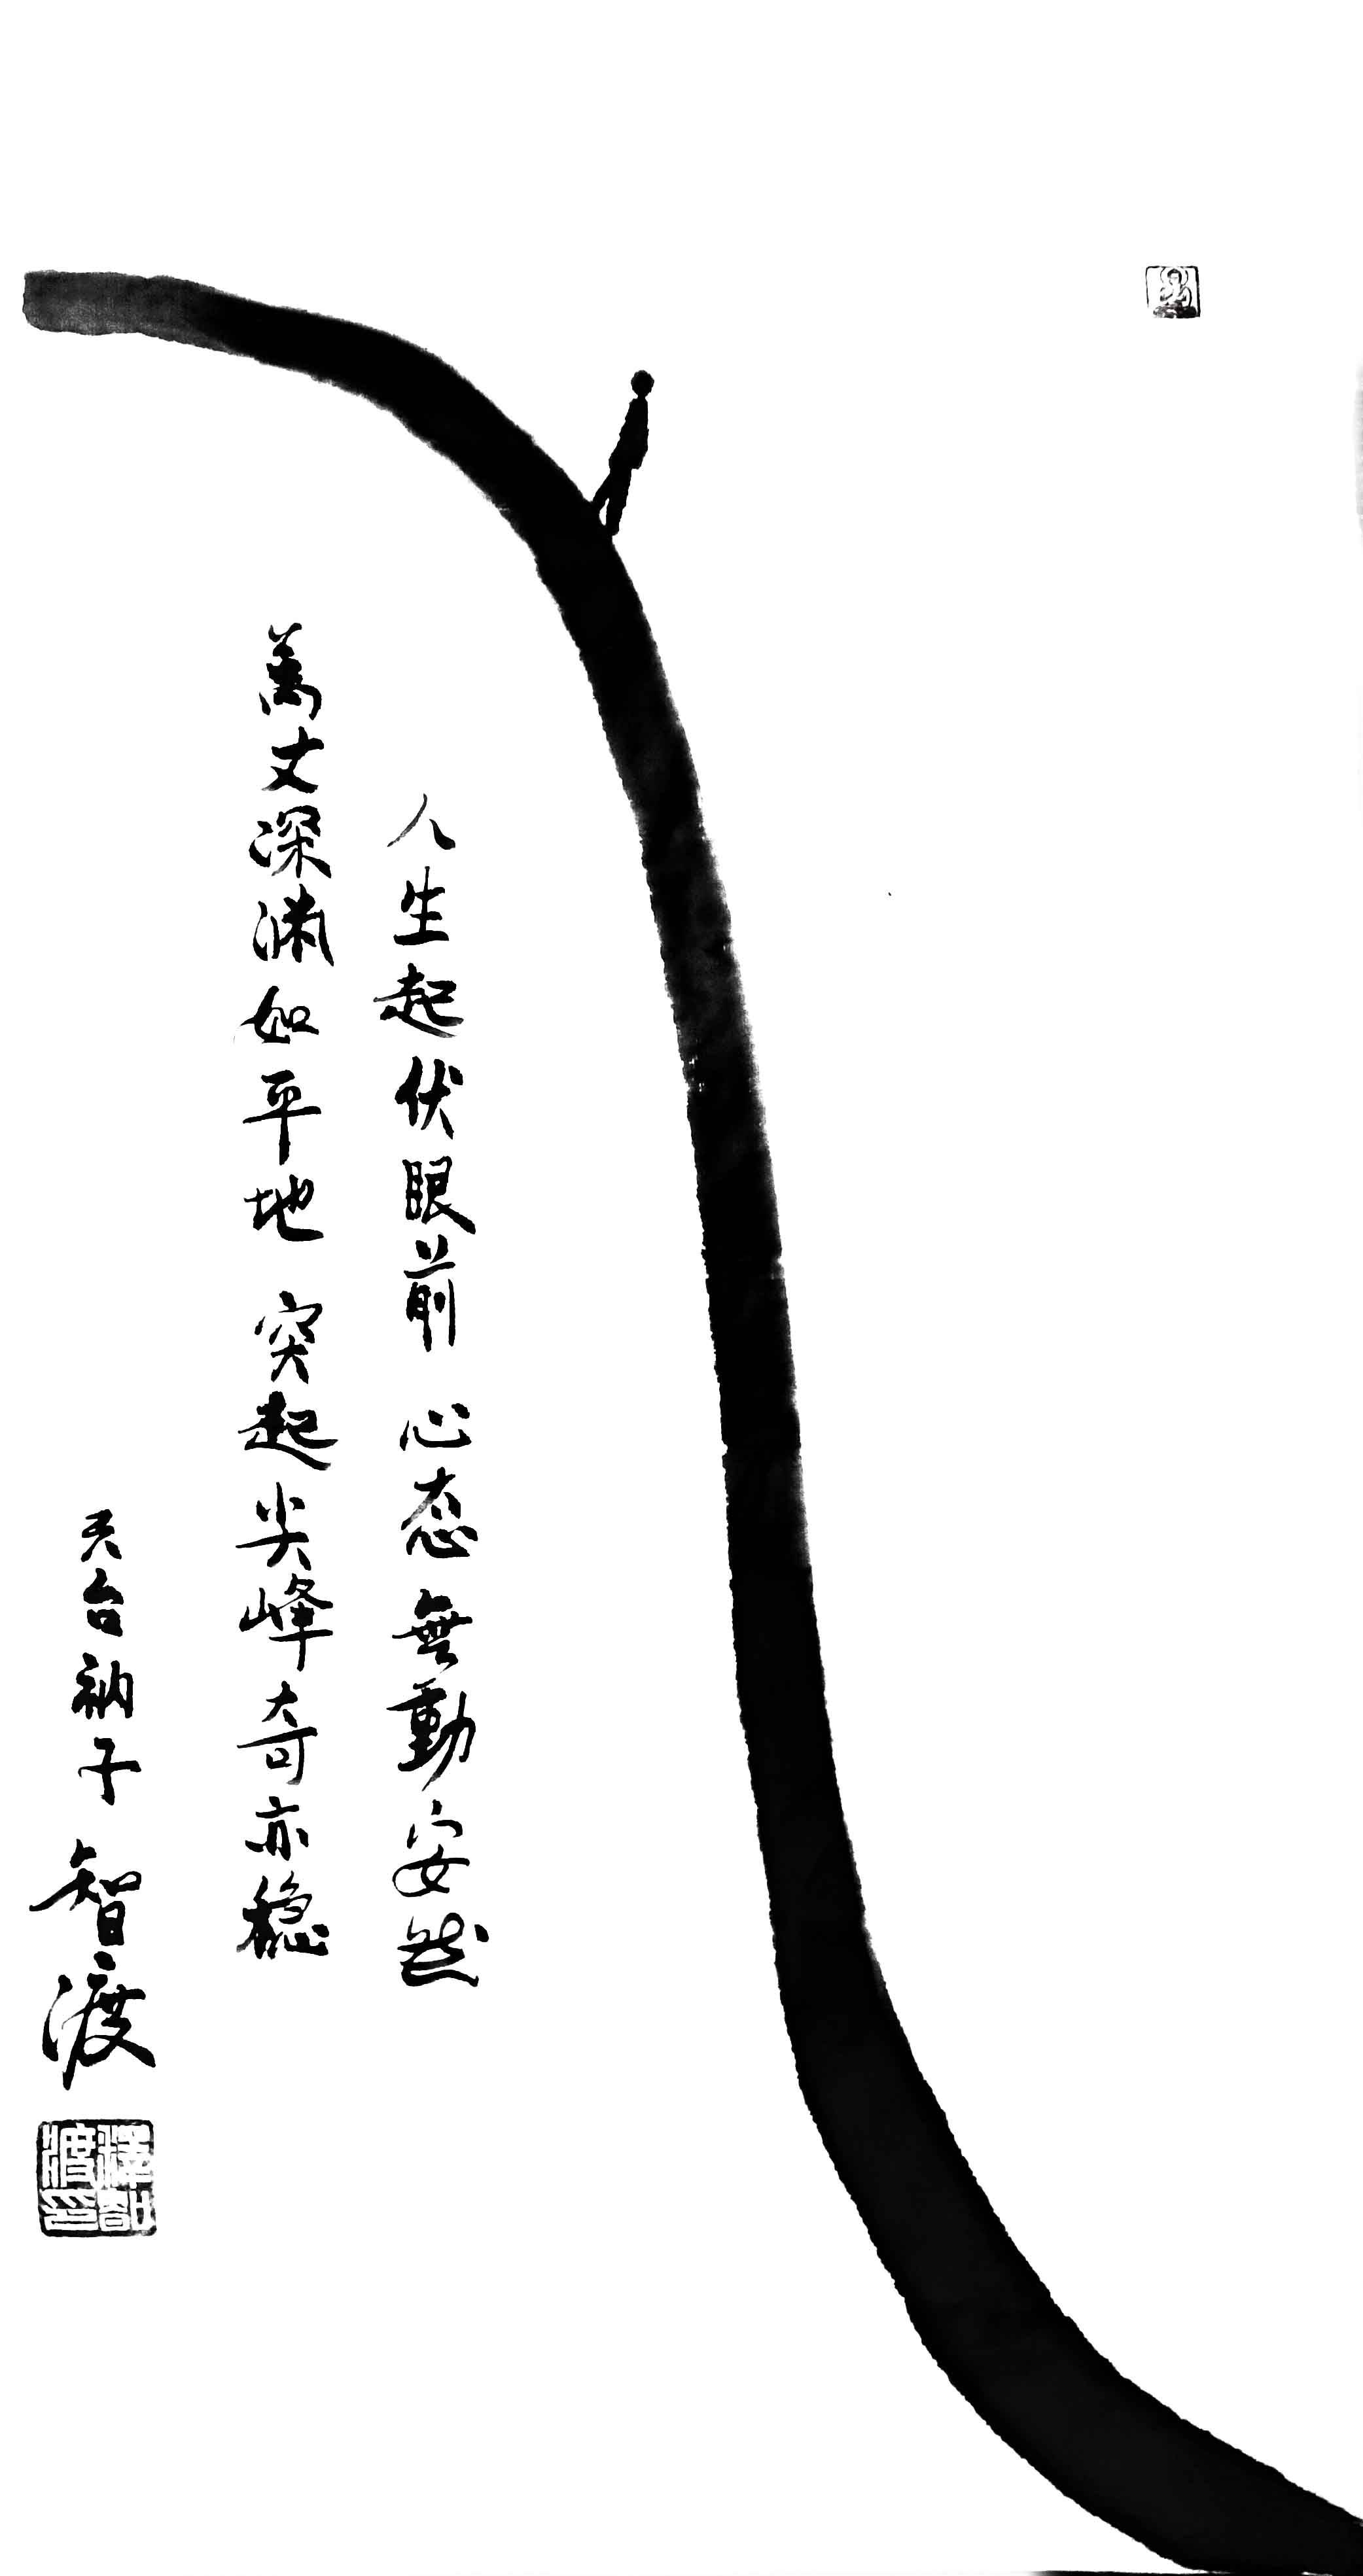 人生起伏眼前 心态無動安然
萬丈深渊如平地 突起尖峰奇亦稳
天台衲子 智渡
釋智渡印